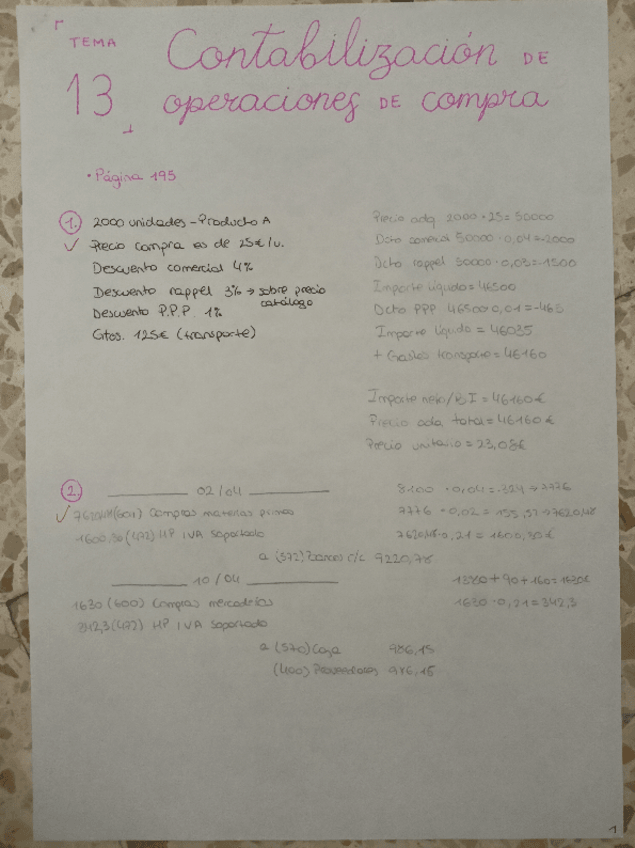 TEMA
13
Contabilización DE
operaciones DE compra
• Página 195
1. 2000 unidades - Producto A
Precio compra es de 25€/u.
Descuento comercial 4%
Descuento rappel 3% → sobre precio
catálogo
Descuento P.P.P 1%
Gtos. 125€ (transporte)
Precio adq. 2000 · 25 = 50000
Dcto comercial 50000 · 0,04 = -2000
Dcto rappel 50000 · 0,03 = -1500
Importe líquido = 46500
Dcto PPP 46500 · 0,01 = -465
Importe líquido = 46035
+ Gastos transporte = 46160
Importe neto/BI = 46160€
Precio adq. total = 46160€
Precio unitario = 23,08€
2. 02/04
7620,48 (601) Compras materias primas
1600,30 (472) HP IVA Soportado
a (572) Bancos c/c 9220,78
10/04
1630 (600) Compras mercaderías
342,3 (472) HP IVA Soportado
a (570) Caja 986,15
(400) Proveedores 986,15
8100 · 0,04 = -324 → 7776
7776 · 0,02 = 155,52 → 7620,48
7620,48 · 0,21 = 1600,30€
1380 + 90 + 160 = 1630€
1630 · 0,21 = 342,3
1